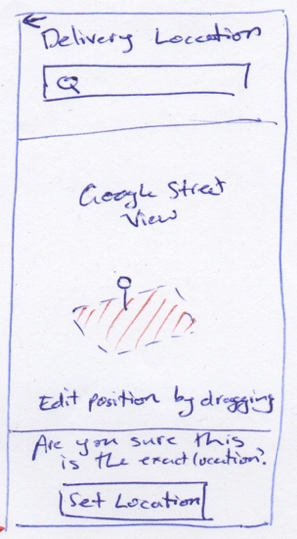 Delivery Location
Google Street
View
Edit position by dragging
Are you sure this
is the exact location?
Set Location